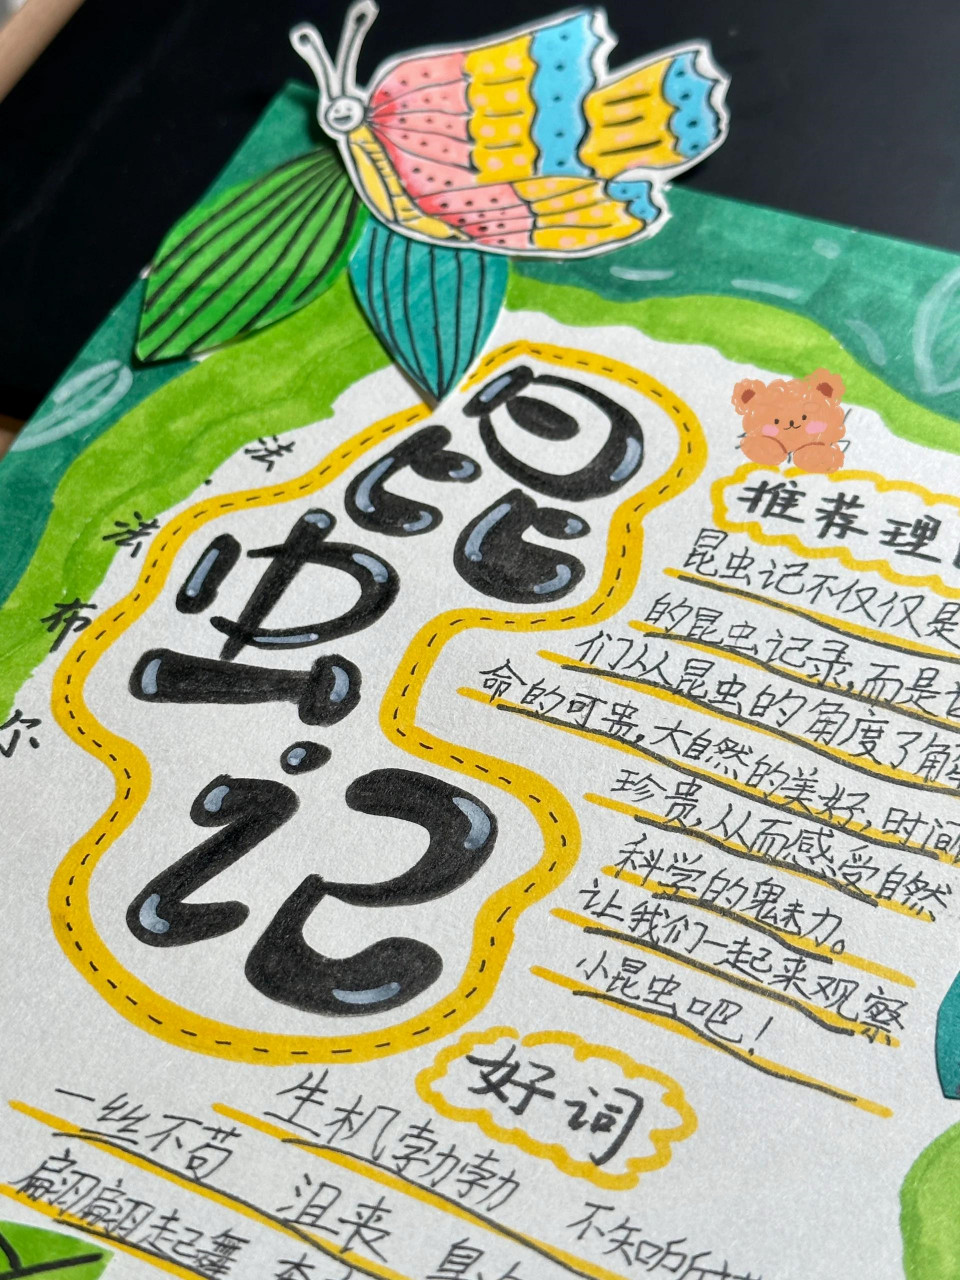 昆虫记
法
法
布
尔
推荐理
昆虫记不仅仅是
的昆虫记录,而是
们从昆虫的角度了解
命的可贵,大自然的美好,时间
珍贵,从而感受自然
科学的魅力。
让我们一起来观察
小昆虫吧!
好词
生机勃勃
不知所
一丝不苟
沮丧
翩翩起舞